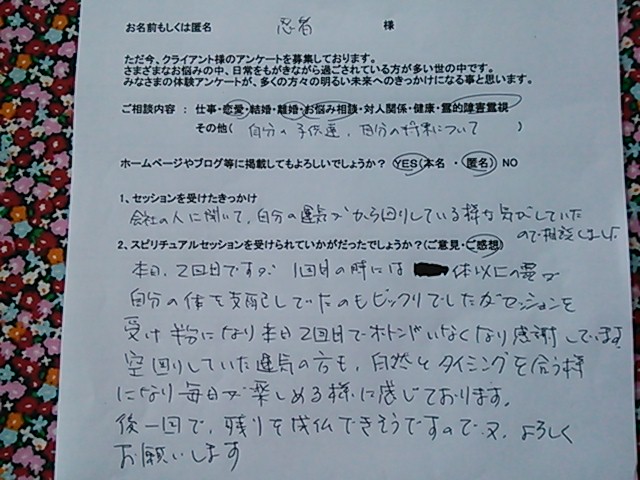 お名前もしくは匿名 忍者 様
ただ今、クライアント様のアンケートを募集しております。
さまざまなお悩みの中、日常をもがきながら過ごされている方が多い世の中です。
みなさまの体験アンケートが、多くの方々の明るい未来へのきっかけになる事と思います。
ご相談内容 : 仕事・恋愛・結婚・離婚・お悩み相談・対人関係・健康・霊的障害霊視
その他( 自分の子供運、自分の将来について )
ホームページやブログ等に掲載してもよろしいでしょうか? YES(本名 ・ 匿名) NO
1、セッションを受けたきっかけ
会社の人に聞いて、自分の運気がから回りしている様な気がしていた
ので相談しました
2、スピリチュアルセッションを受けられていかがだったでしょうか?(ご意見・ご感想)
本日、2回目ですが、1回目の時には 体以上の霊が
自分の体を支配していたのもビックリでしたがセッションを
受け半分になり本日2回目でホトンドいなくなり感謝しています
空回りしていた運気の方も、自然とタイミングを合う様
になり毎日が楽しめる様に感じております。
後一回で、残りを成仏できそうですので又、よろしく
お願いします